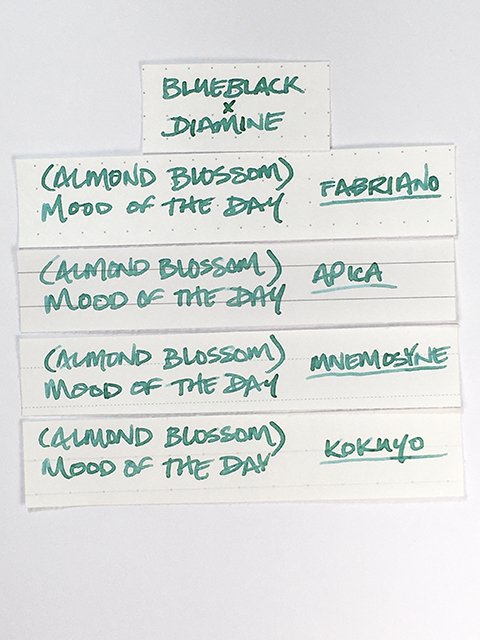 BLUEBLACK
x
DIAMINE
(ALMOND BLOSSOM)
MOOD OF THE DAY
FABRIANO
(ALMOND BLOSSOM)
MOOD OF THE DAY
APICA
(ALMOND BLOSSOM)
MOOD OF THE DAY
MNEMOSYNE
(ALMOND BLOSSOM)
MOOD OF THE DAY
KOKUYO